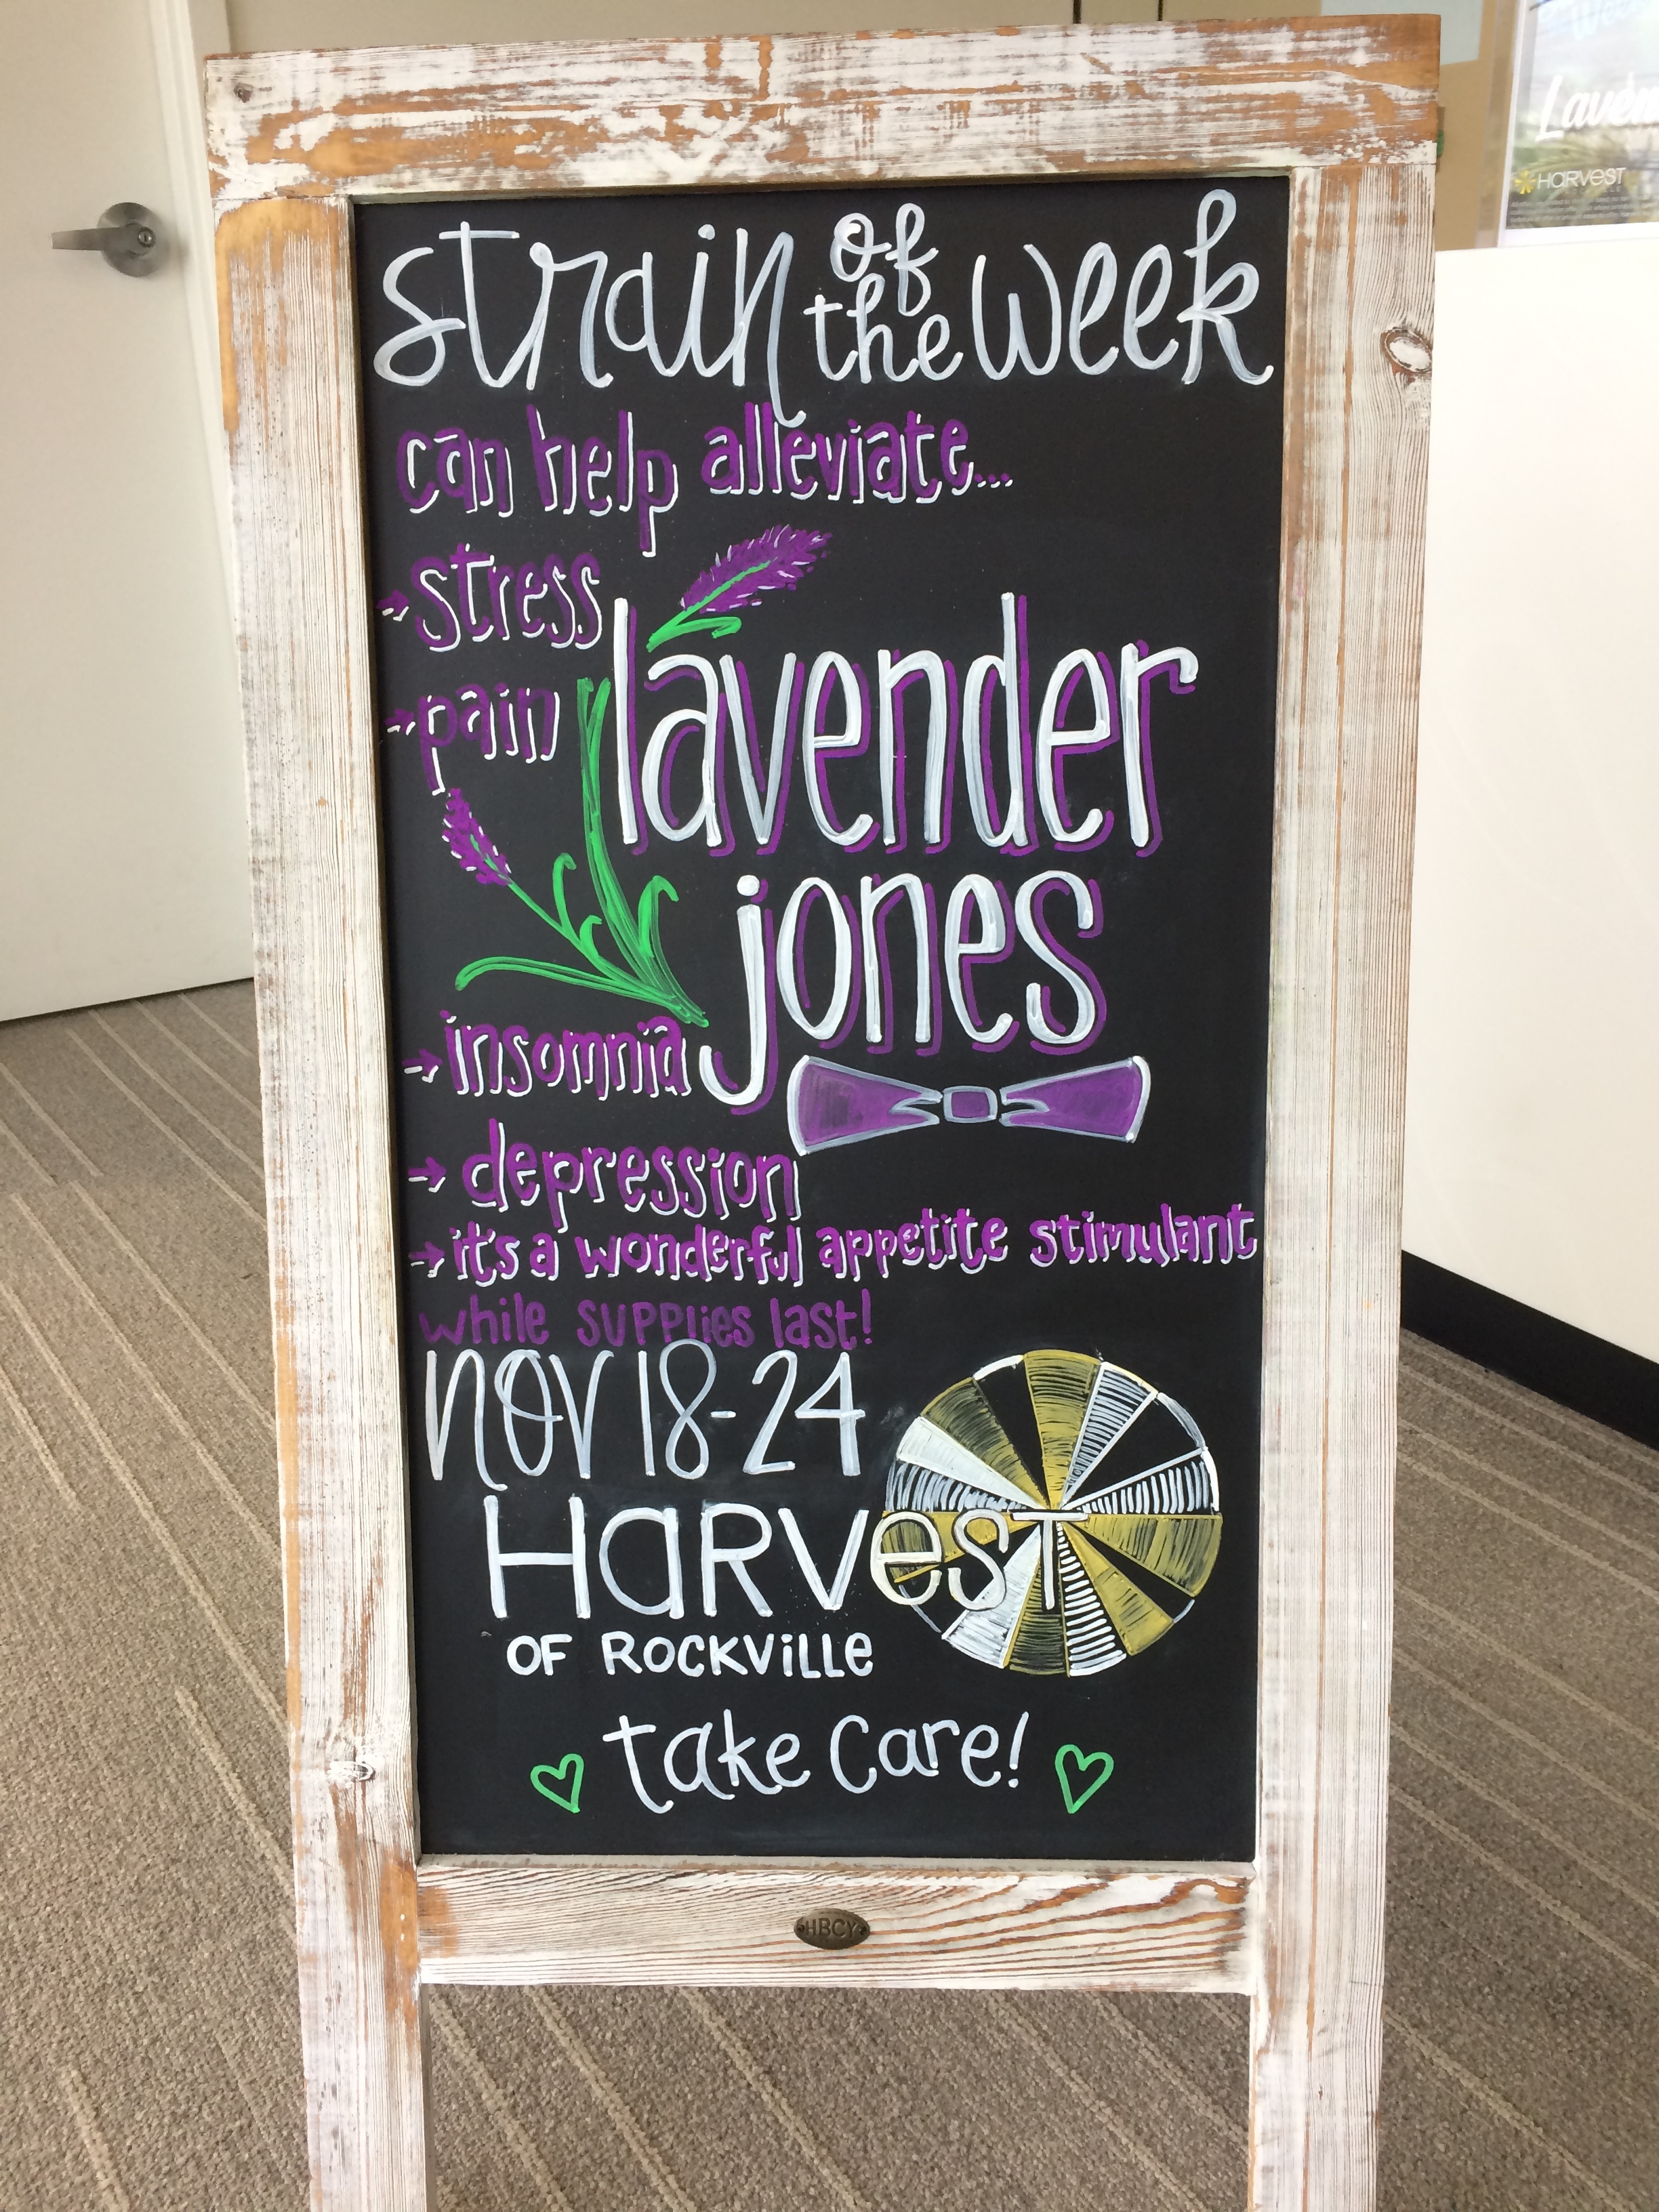 strain of the week
can help alleviate...
→ stress
→ pain
lavender
jones
→ insomnia
→ depression
→ it's a wonderful appetite stimulant
while supplies last!
NOV 18-24
HaRVesT
OF ROCKViLLe
take care!
HBCY
HARVEST